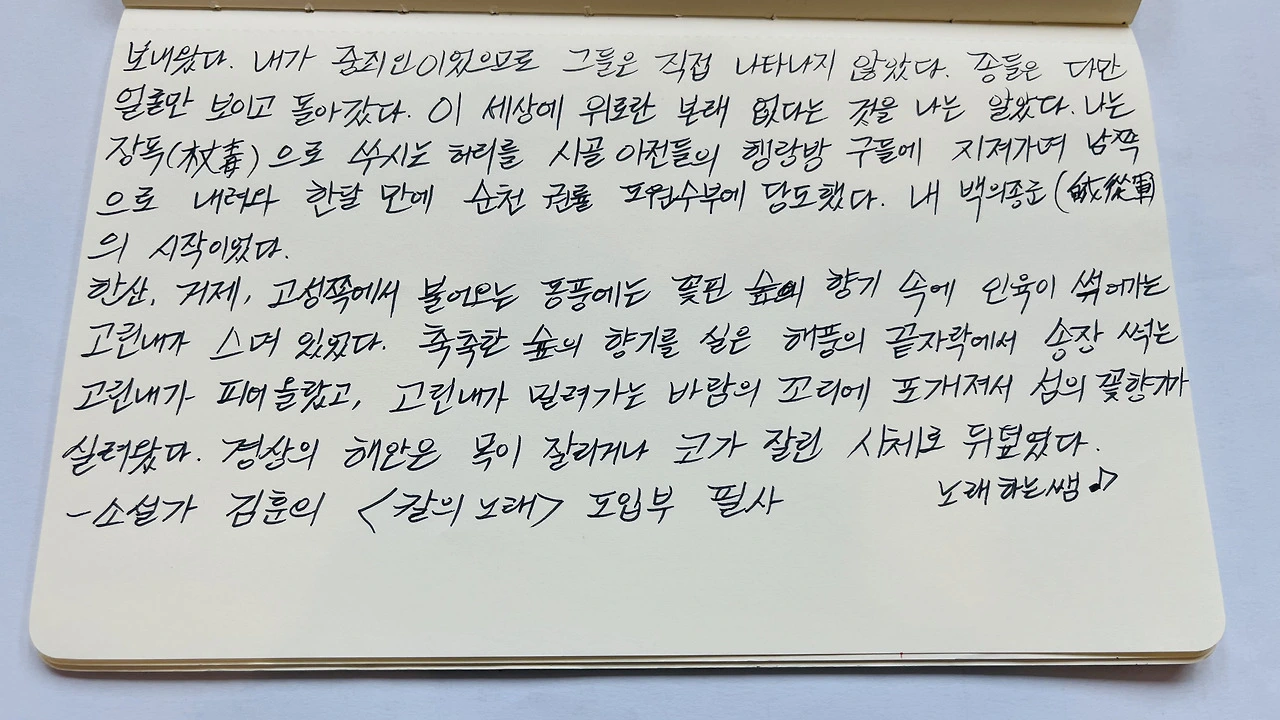 보내왔다. 내가 중죄인이었으므로 그들은 직접 나타나지 않았다. 종들은 다만
얼굴만 보이고 돌아갔다. 이 세상에 위로란 본래 없다는 것을 나는 알았다. 나는
장독(杖毒)으로 쑤시는 허리를 시골 아전들의 행랑방 구들에 지져가며 남쪽
으로 내려와 한달 만에 순천 권률 도원수부에 당도했다. 내 백의종군(
의 시작이었다.
한산, 거제, 고성쪽에서 불어오는 동풍에는 꽃핀 숲의 향기 속에 인육이 썩어가는
고린내가 스며 있었다. 축축한 숲의 향기를 실은 해풍의 끝자락에서 송장 썩는
고린내가 피어올랐고, 고린내가 밀려가는 바람의 꼬리에 포개져서 섬의 꽃향기가
실려왔다. 경상의 해안은 목이 잘리거나 코가 잘린 시체로 뒤덮였다.
-소설가 김훈의 <칼의 노래> 도입부 필사 노래하는쌤♪